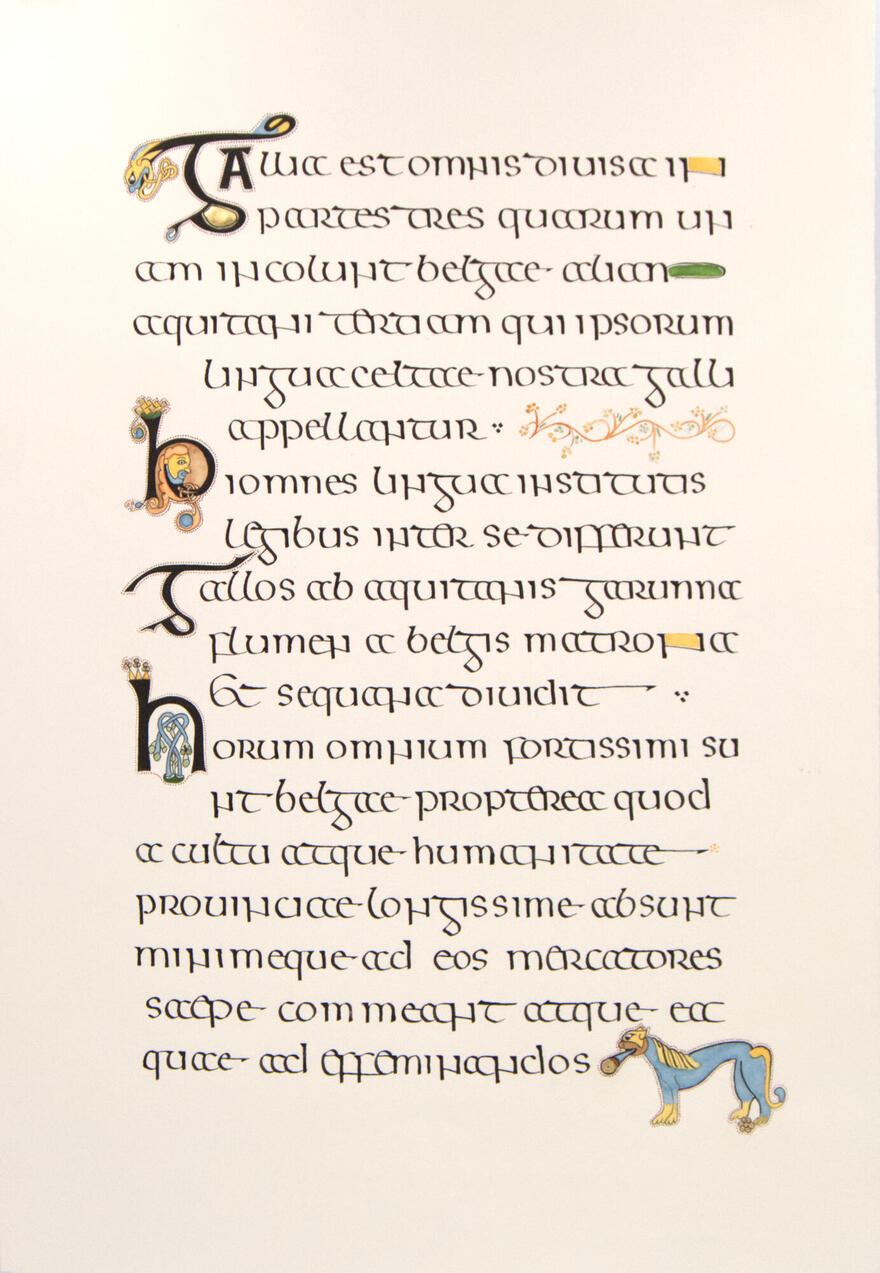 GAllia est omnis diuisa in
partes tres quarum un
am incolunt belgae alian
aquitani tertiam qui ipsorum
lingua celtae nostra galli
appellantur
hi omnes lingua institutis
legibus inter se differunt
Gallos ab aquitanis garunna
flumen a belgis matrona
Et sequana diuidit
horum omnium fortissimi su
nt belgae propterea quod
a cultu atque humanitate
prouinciae longissime absunt
minimeque ad eos mercatores
saepe commeant atque ea
quae ad effeminandos